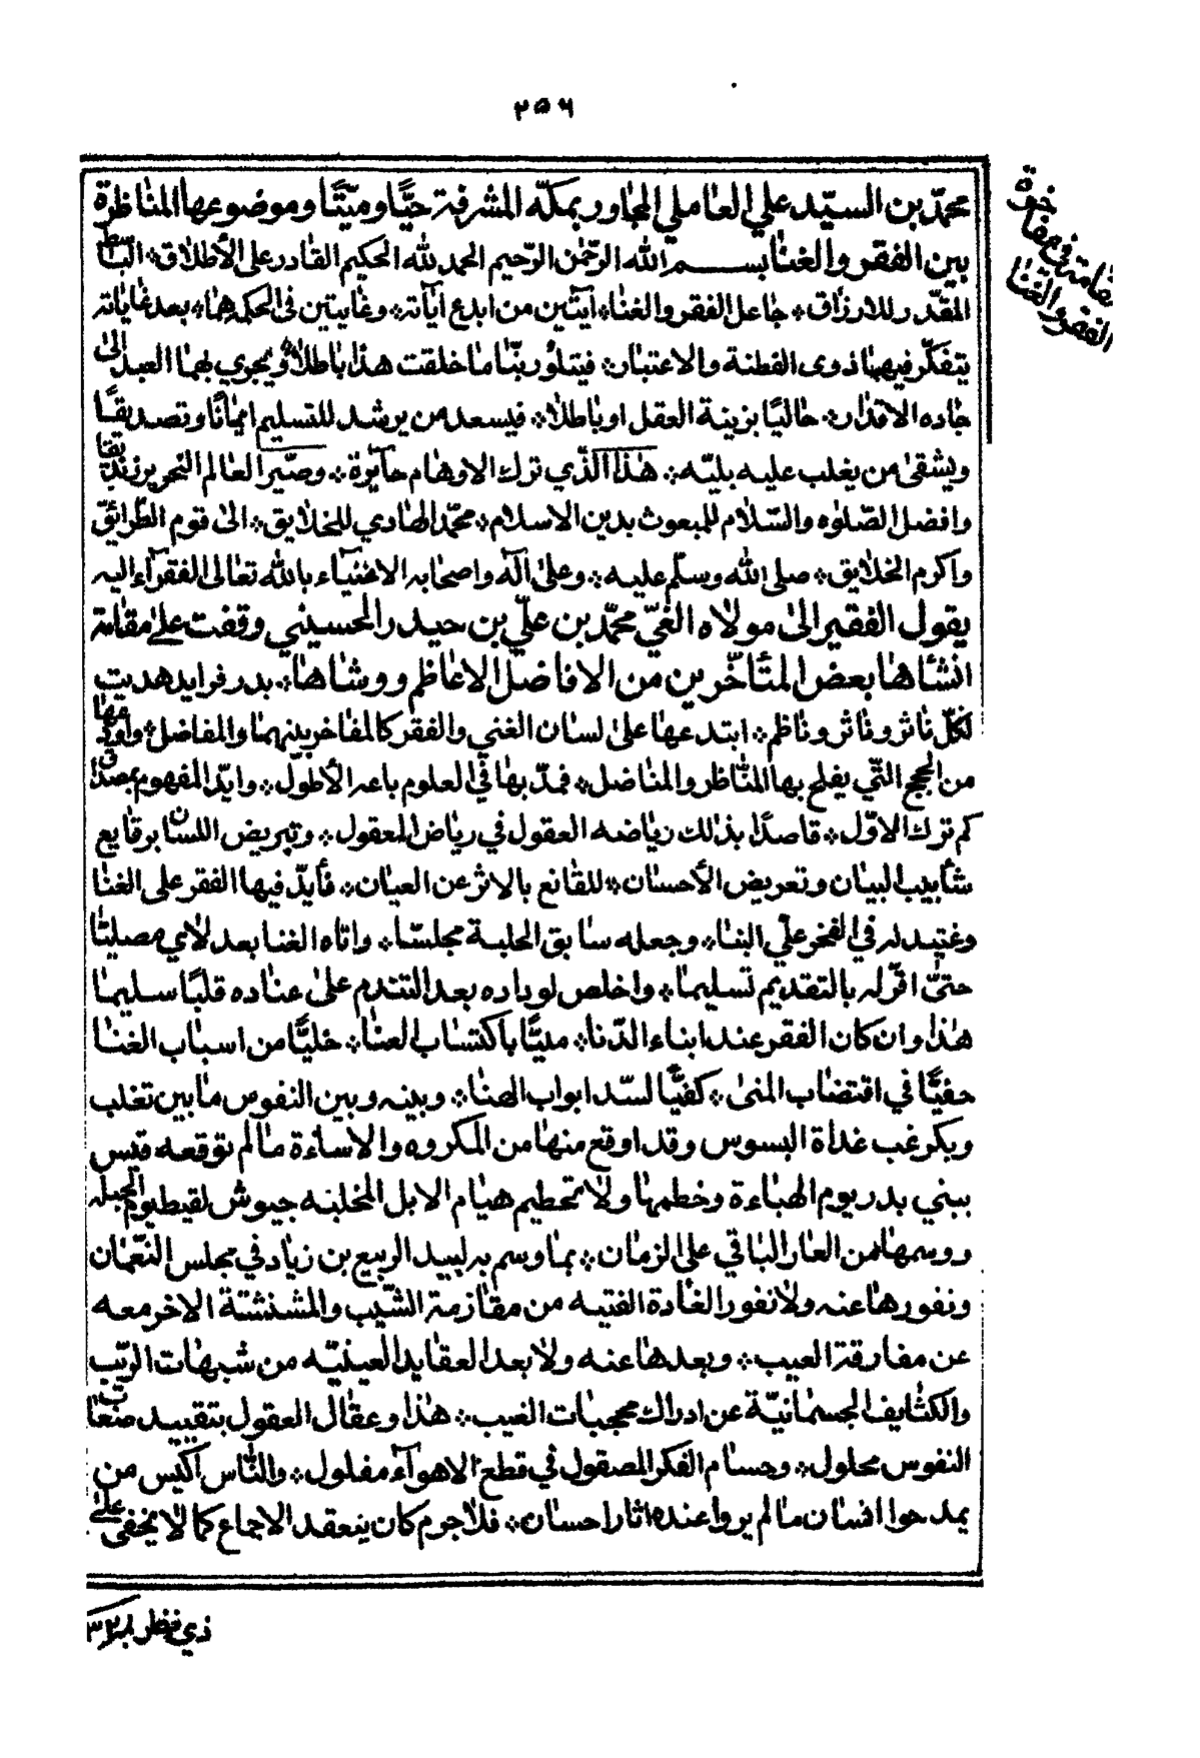 ٢٥٦
مقامة في مفاخرة
الفقر والغنا
محمّد بن السيّد علي العاملي المجاور بمكّة المشرفة حيًّا وميّتًا وموضوعها المناظرة
بين الفقر والغنا بسم الله الرحمن الرحيم الحمد لله الحكيم القادر على الأطلاق الباسط
المقدّر للارزاق جاعل الفقر والغناء ايتين من ابدع اياته وغايتين في الحكم هما بعد غاياته
يتفكّر فيهما ذوى الفطنة والاعتبار فيتلو ربّنا ما خلقت هذا باطلا ويجري بهما العبد الى
جاده الاقدار حاليًا بزينة العقل او باطلا فيسعد من يرشد للتسليم ايمانًا وتصديقًا
ويشقى من يغلب عليه بليّه هذا الّذي ترك الاوهام حآيرة وصيّر العالم النحرير زنديقا
وافضل الصّلوه والسّلام للمبعوث بدين الاسلام محمّد الهادي للخلايق الى قوم الطّرائق
واكرم الخلايق صلى الله وسلّم عليه وعلى آله واصحابه الاغنيآء بالله تعالى الفقرآء اليه
يقول الفقير الى مولاه الغنيّ محمّد بن علّي بن حيدر الحسيني وقفت على مقامة
انشأها بعض المتأخّرين من الافاضل الاعاظم ووشاها بدر فرايد هديت
لكلّ ناثر وناثر وناظم ابتدعها على لسان الغني والفقر كالمفاخر بينهما والمفاضل واودعها
من الحجج التّي يفلج بها المناظر والمناضل فمدّ بها في العلوم باعه الأطول وايّد المفهوم بمصداق
كم ترك الاوّل قاصدًا بذلك رياضه العقول في رياض المعقول وتبريض اللسان برقايع
شأبيب البيان وتعريض الأحسان للقانع بالاثر عن العيان فأيدّ فيها الفقر على الغنا
وشيد له في الفخر علّي البنا وجعله سابق الحلبة مجلسّا واتاه الغنا بعد لاي مصليّا
حتّى اقرّ له بالتقديم تسليما واخلص لوداده بعد التندم على عناده قلبًا سليما
هذا وان كان الفقر عند ابناء الدّنا مليًّا باكتساب العنا خليًّا من اسباب الغنا
حفيًّا في اقتضاب المنى كفيًّا لسّد ابواب الهنا وبينه وبين النفوس ما بين تغلب
وبكر غب غداة البسوس وقد اوقع منها من المكروه والاساءة ما لم توقعه قيس
ببني بدر يوم الهباءة وخطمها ولا تحطيم هيام الابل المخلبه جيوش لقيط يوم الجبله
ووسمها من العار الباقي على الزمان بما وسم به لبيد الربيع بن زياد في مجلس النّعمان
ونفورها عنه ولا نفور الغادة الفتيه من مقازمة الشّيب والمشنشتة الاخر معه
عن مفارقة العيب وبعدها عنه ولا بعد العقايد العينيّه من شبهات الرّيب
والكثايف الجسمانيّة عن ادراك محجبات الغيب هذا وعقال العقول بتقييد صنعات
النفوس محلول وحسام الفكر المصقول في قطع الاهوآء مفلول والنّاس اكيس من
يمدحوا انسان ما لم يروا عنده اثار احسان فلا جرم كان ينعقد الاجماع كما لا يخفى على
ذي نظر